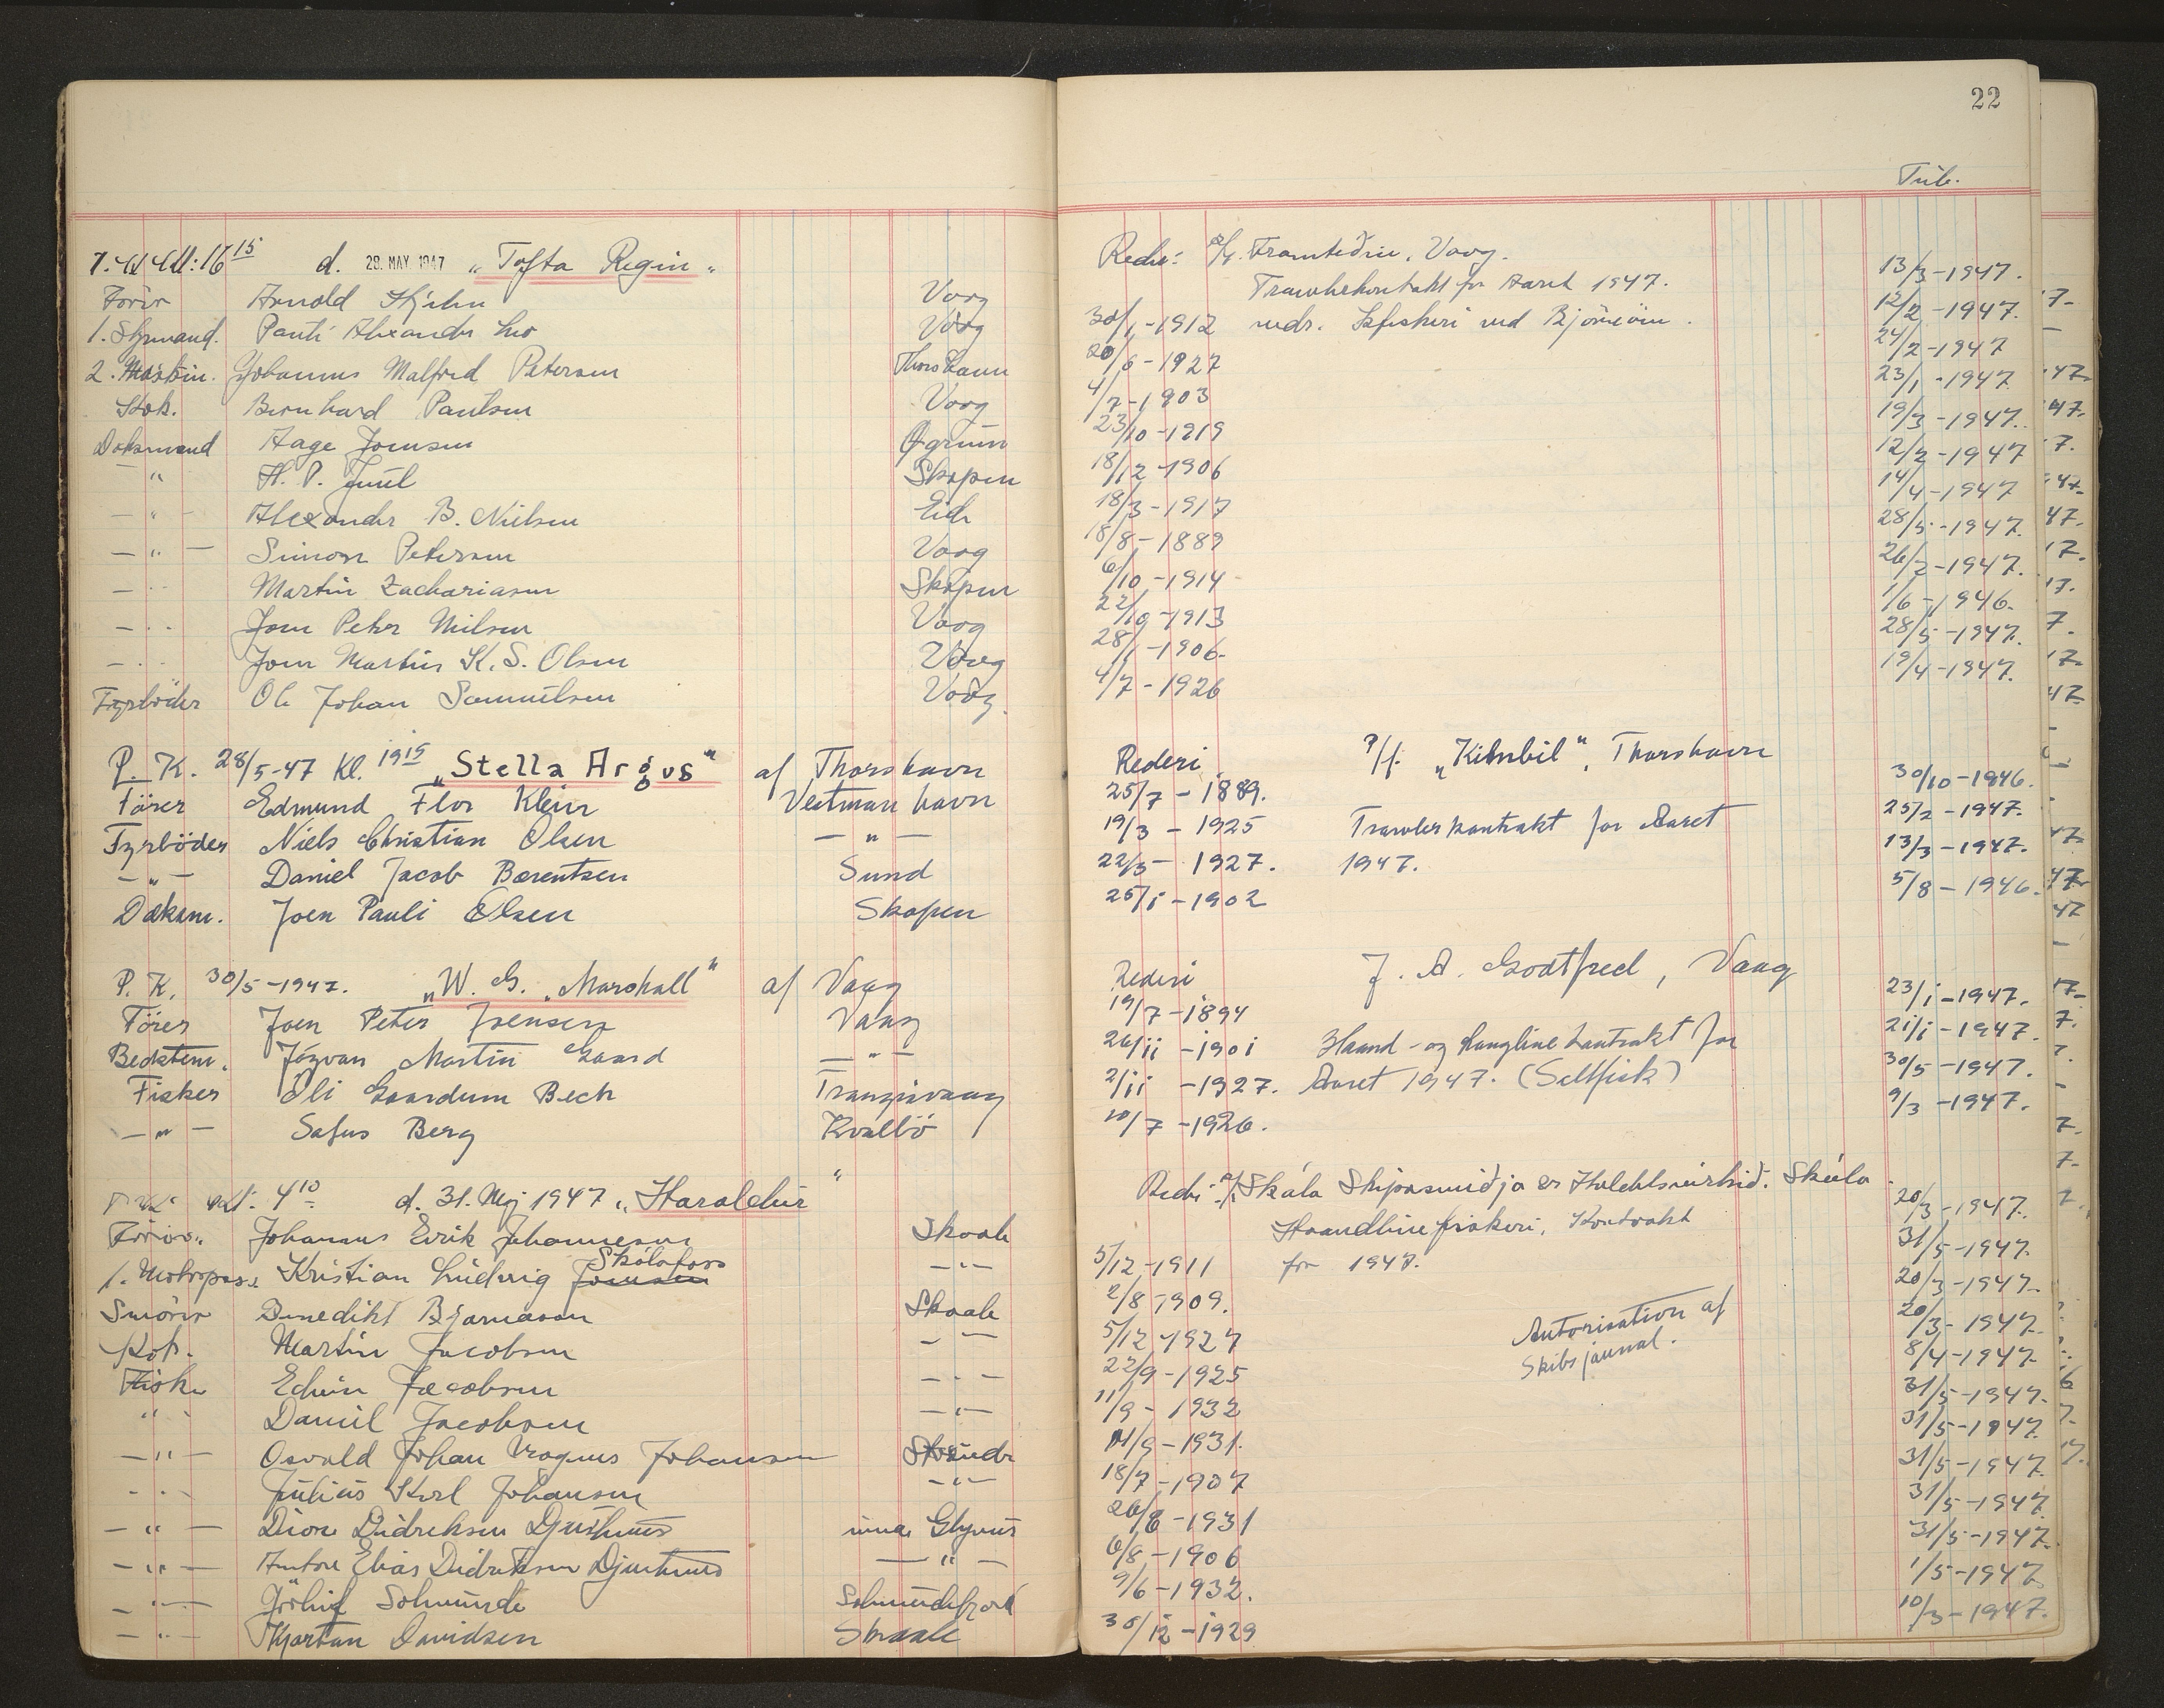 22
Tib.
Kl: 16 15 d. 29. MAY 1947 „Tofta Regin“ Rederi: P/f. Framtidin, Vaag.
Förer Arnold Hjelm Vaag Trawlerkontrakt for Aaret 1947. 13/3-1947.
1. Styrmand. Pauli Alexander Vaag 30/1-1912 vedr. Isfiskeri ved Björnöen. 12/2-1947.
2. Maskin. Johannes Malfred Petersen Thorshavn 20/6-1927 24/2-1947
Kok. Bernhard Poulsen Vaag 4/7-1903 23/1-1947
Dæksmand Aage Joensen Øgrum 23/10-1919 19/3-1947.
— " H. P. Juul Skopun 18/12-1906 12/2-1947
— " — Alexander B. Nielsen Eide 18/3-1917 14/4-1947
— " — Simon Petersen Vaag 18/8-1889 28/5-1947.
— " Martin Zachariasen Skopun 6/10-1914 26/2-1947.
— " Joen Peter Nielsen Vaag 22/10-1913 1/6-1946.
— " Joen Martin K. S. Olsen Vaag 28/1-1906. 28/5-1947.
Fyrböder Ole Johan Samuelsen Vaag. 4/7-1926 19/4-1947.
P. K. 28/5-47 Kl. 19 15 „Stella Argus“ af Thorshavn Rederi P/f. „Kimbil“, Thorshavn
Förer Edmund Flor Klein Vestmanhavn 25/7-1889. 30/10-1946.
Fyrböder Niels Christian Olsen — " — 19/3-1925 Trawlerkontrakt for Aaret 25/2-1947.
— " — Daniel Jacob Bærentsen Sund 22/3-1927. 1947. 13/3-1947.
Dæksm. Joen Pauli Olsen Skopen 25/1-1902 5/8-1946.
P. K. 30/5-1947. „W. G. Marshall“ af Vaag Rederi J. A. Godtfred, Vaag
Förer Joen Peter Joensen Vaag 19/7-1894 23/1-1947.
Bedstem. Jógvan Martin Gaard — " — 26/11-1901 Haand- og Langlinekontrakt for 21/1-1947.
Fisker Óli Gaardum Bech Trangisvaag 2/11-1927. Aaret 1947. (Saltfisk) 30/5-1947.
— " — Sofus Berg Kvalbö 10/7-1926. 9/3-1947.
Kl: 4 10 d. 31. Maj 1947 „Haraldur“ Rederi: P/f Skála Skipasmidja & Skála.
Förer. Johannes Eirik Johannesen Skaale Haandlinefiskeri. Kontrakt 20/3-1947.
1. Motorpass. Kristian Ludvig Joensen Skálafoss — " — 5/12-1911 for 1947. 31/5-1947.
Smörer Benedikt Bjarnason Skaale 2/8-1909. 20/3-1947.
Kok. Martin Jacobsen — " — 5/12-1927 Autorisation af 20/3-1947.
Fisker Edvin Jacobsen — " — 22/9-1925 Skibsjournal. 8/4-1947.
" Daniel Jacobsen — " — 11/9-1932 31/5-1947.
— " — Osvald Johan Magnus Johansen Strænder 11/9-1931. 31/5-1947.
— " Julius Karl Johansen — " — 18/7-1907 31/5-1947.
— " — Dione Didriksen Djurhuus inna Glyvur 26/8-1931 31/5-1947
— " — Anton Elias Didriksen Djurhuus — " — 6/8-1906 31/5-1947.
— " — Solmunde Solmundefjord 9/6-1932. 1/5-1947
— " — Kjartan Davidsen Skaale 30/12-1929 10/3-1947.